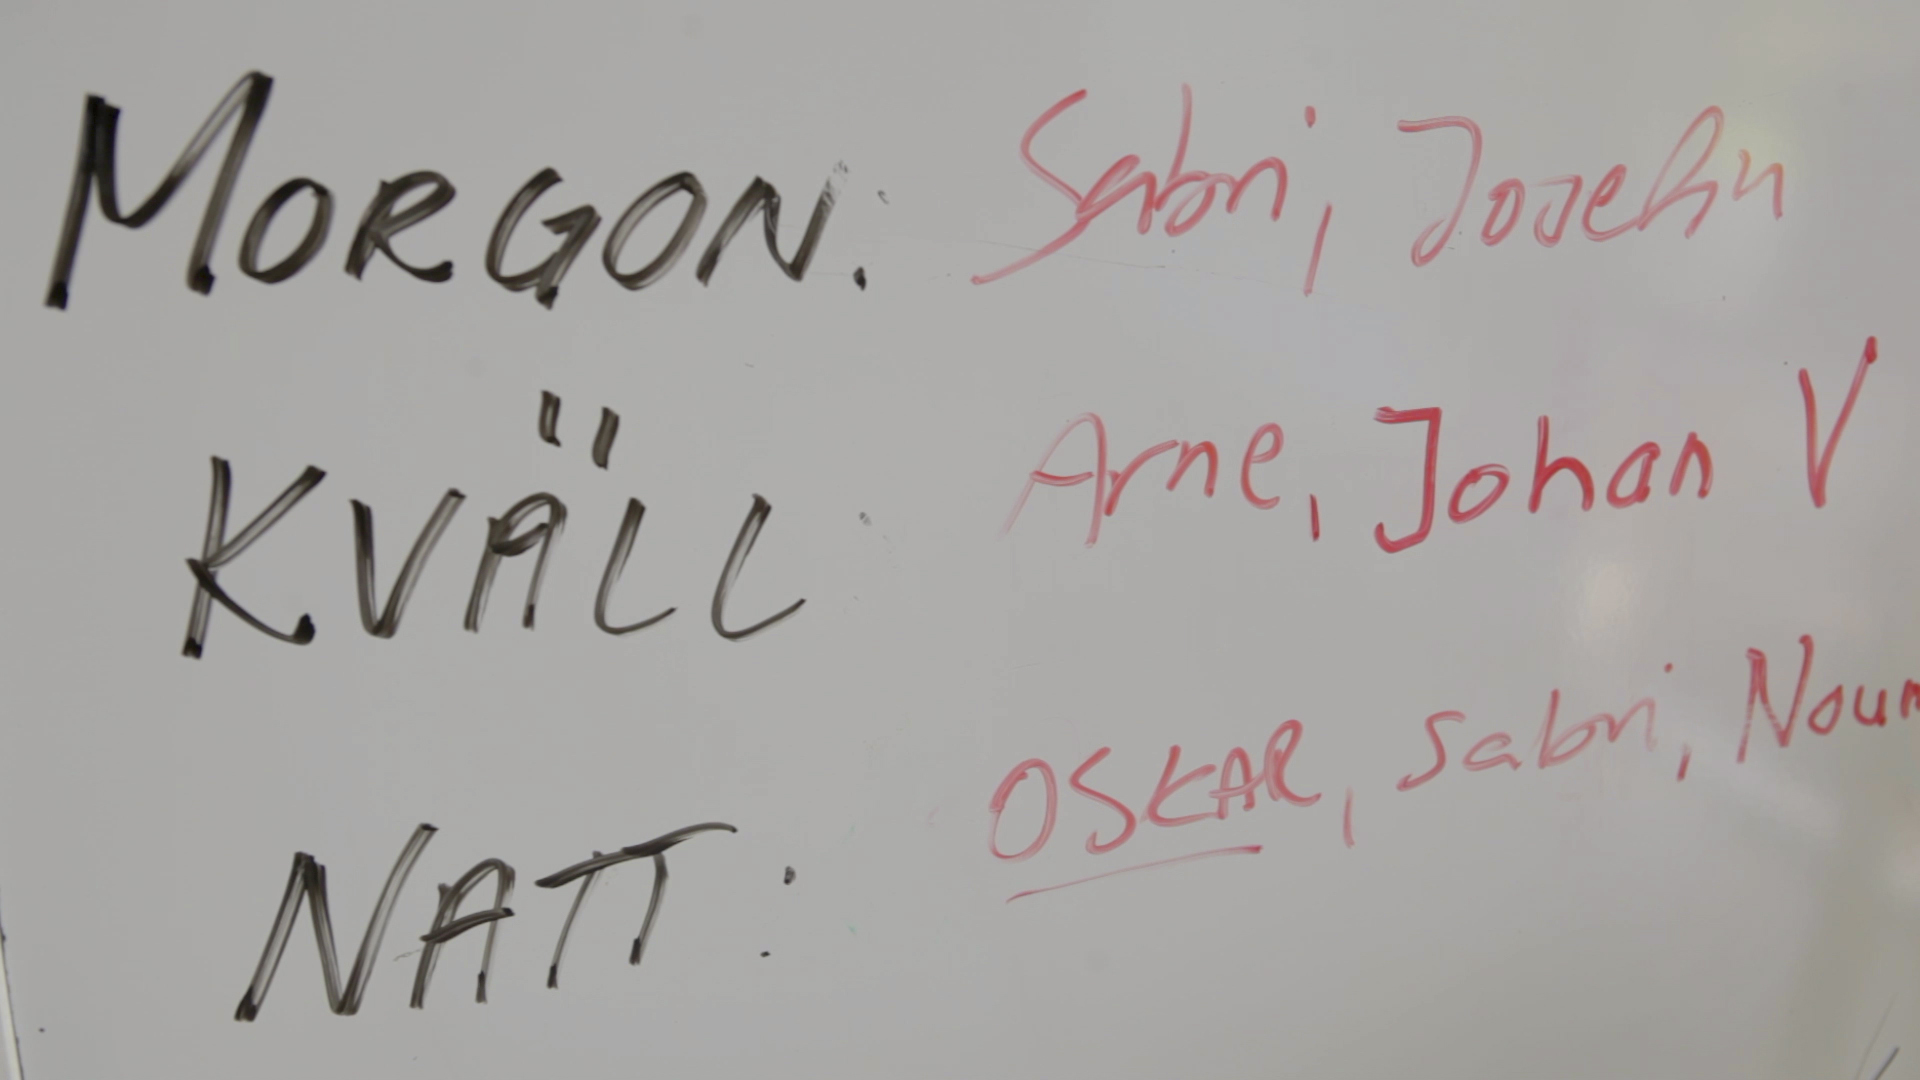 MORGON: Sabri, Josefin
KVÄLL Arne, Johan V
NATT: OSKAR, Sabri,